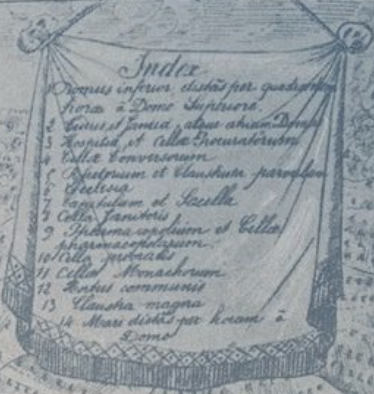 Index
1 Domus inferior distãs per quadrantem
horæ à Domo Superiore.
2 et Janua, atque atrium Domus
3 Hospitia et Cellæ Procuratorum
4 Cellæ Conversorum
5 Refectorium et Claustrum parvulum
6 Ecclesia
7 Capitulum et Sacella
8 Cella Janitoris
9 Pharmacopolium et Cella
pharmacopolarum.
10 Cella
11 Cellæ Monachorum
12 Hortus communis
13 Claustra magna
14 Mare distãs per horam à
Domo